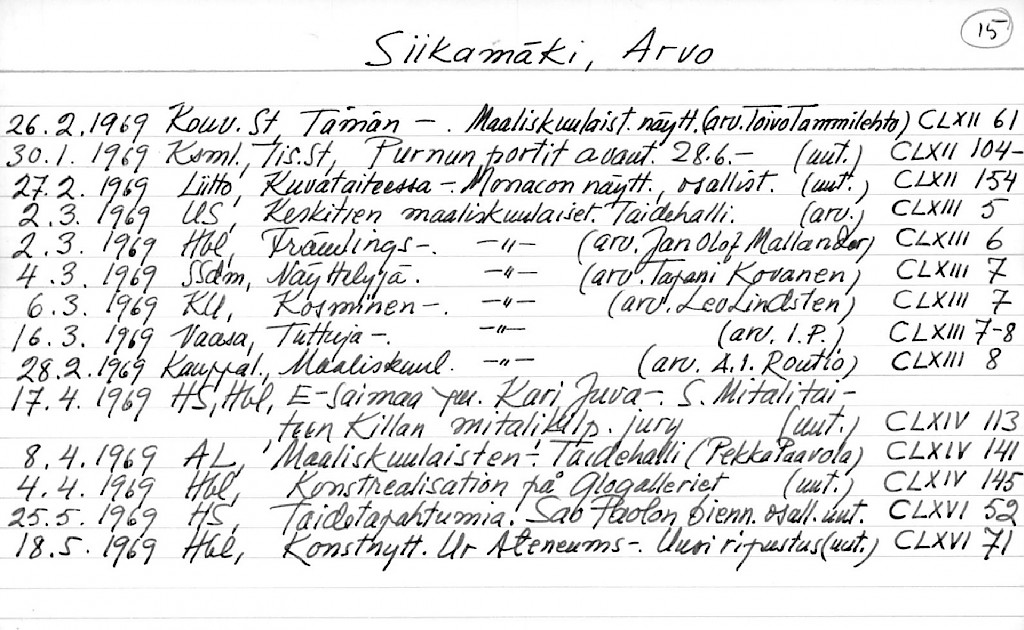 15
Siikamäki, Arvo
26.2.1969 Kouv. St, Tämän -. Maaliskuulaist. näytt. (arv. Toivo Tammilehto) CLXII 61
30.1.1969 Ksml., Tis.St, Purnun portit avaut. 28.6.- (uut.) CLXII 104-
27.2.1969 Liitto, Kuvataiteessa -. Monacon näytt., osallist. (uut.) CLXII 154
2.3.1969 US, Keskitien maaliskuulaiset. Taidehalli. (arv.) CLXIII 5
2.3.1969 Hbl, Främlings -. -"- (arv. Jan Olof Mallander) CLXIII 6
4.3.1969 SSdm, Näyttelyjä. -"- (arv. Tapani Kovanen) CLXIII 7
6.3.1969 KU, Kosminen -. -"- (arv. Leo Lindsten) CLXIII 7
16.3.1969 Vaasa, Tuttuja -. -"- (arv. I.P.) CLXIII 7-8
28.2.1969 Kauppal., Maaliskuul. -"- (arv. A.I. Routio) CLXIII 8
17.4.1969 HS, Hbl, E-Saimaa ym. Kari Juva -. S. Mitalitai-
teen Killan mitalikilp. jury (uut.) CLXIV 113
8.4.1969 AL, Maaliskuulaisten -. Taidehalli (Pekka Paavola) CLXIV 141
4.4.1969 Hbl, Konstrealisation på Glogalleriet (uut.) CLXIV 145
25.5.1969 HS, Taidetapahtumia. Sao Paolon bienn. osall. uut. CLXVI 52
18.5.1969 Hbl, Konstnytt. Ur Ateneums -. Uusi ripustus (uut.) CLXVI 71